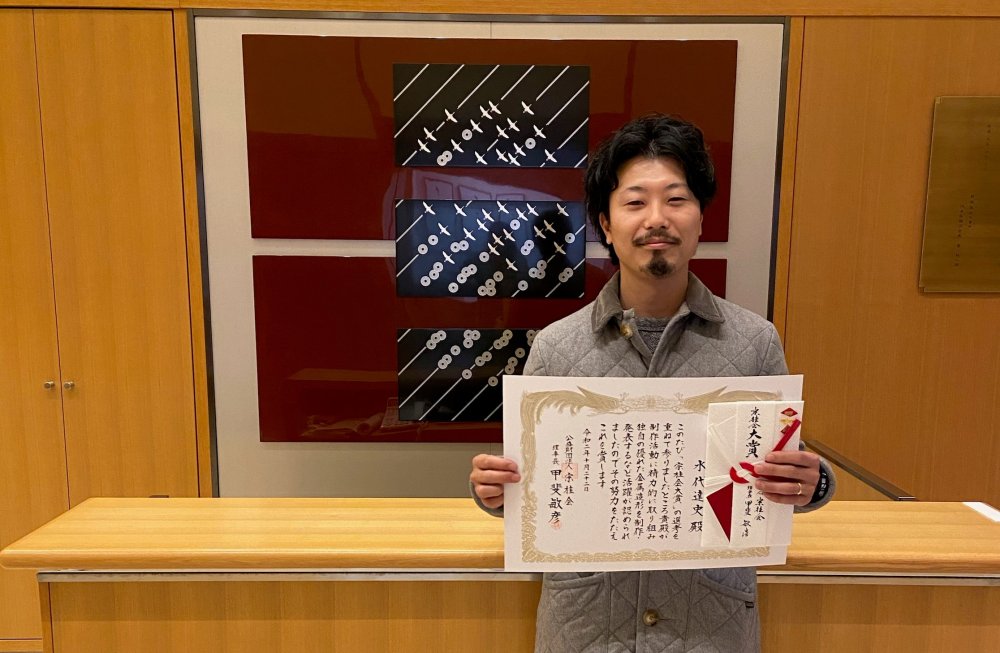 永代達史殿
このたび、宗桂会大賞の選考を
重ねて参りましたところ貴殿が
制作活動に精力的に取り組み
独自の優れた金属造形を制作・
発表するなど活躍が認められ
ましたのでその努力をたたえ
これを賞します
令和二年十月二十二日
公益財団法人宗桂会
理事長 甲斐敏彦
宗桂会大賞
宗桂会
甲斐敏彦